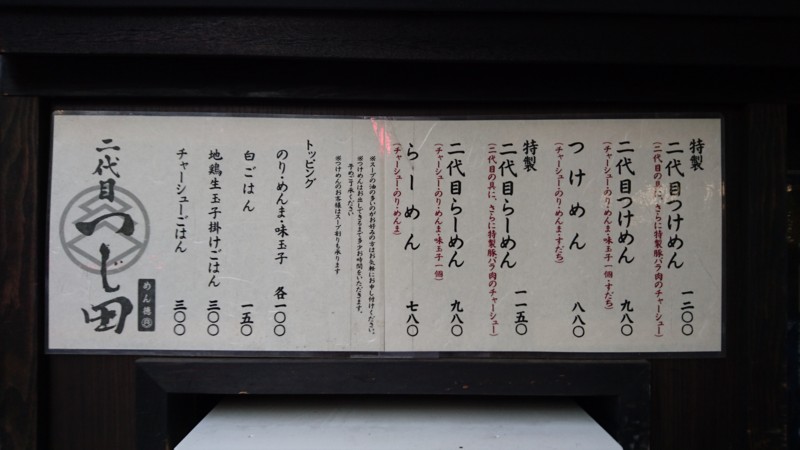 特製
二代目つけめん 一二〇〇
(二代目の具に、さらに特製豚バラ肉のチャーシュー)
二代目つけめん 九八〇
(チャーシュー・のり・めんま・味玉子一個・すだち)
つけめん 八八〇
(チャーシュー・のり・めんま・すだち)
特製
二代目らーめん 一一五〇
(二代目の具に、さらに特製豚バラ肉のチャーシュー)
二代目らーめん 九八〇
(チャーシュー・のり・めんま・味玉子一個)
らーめん 七八〇
(チャーシュー・のり・めんま)
※スープの油の多いのがお好みの方はお気軽にお申し付けください。
※つけめんはお出しできるまで多少お時間をいただきます。
予めご了承ください
※つけめんのお客様はスープ割りも承ります
トッピング
のり・めんま・味玉子 各一〇〇
白ごはん 一五〇
地鶏生玉子掛けごはん 三〇〇
チャーシューごはん 三〇〇
二代目つじ田
めん徳